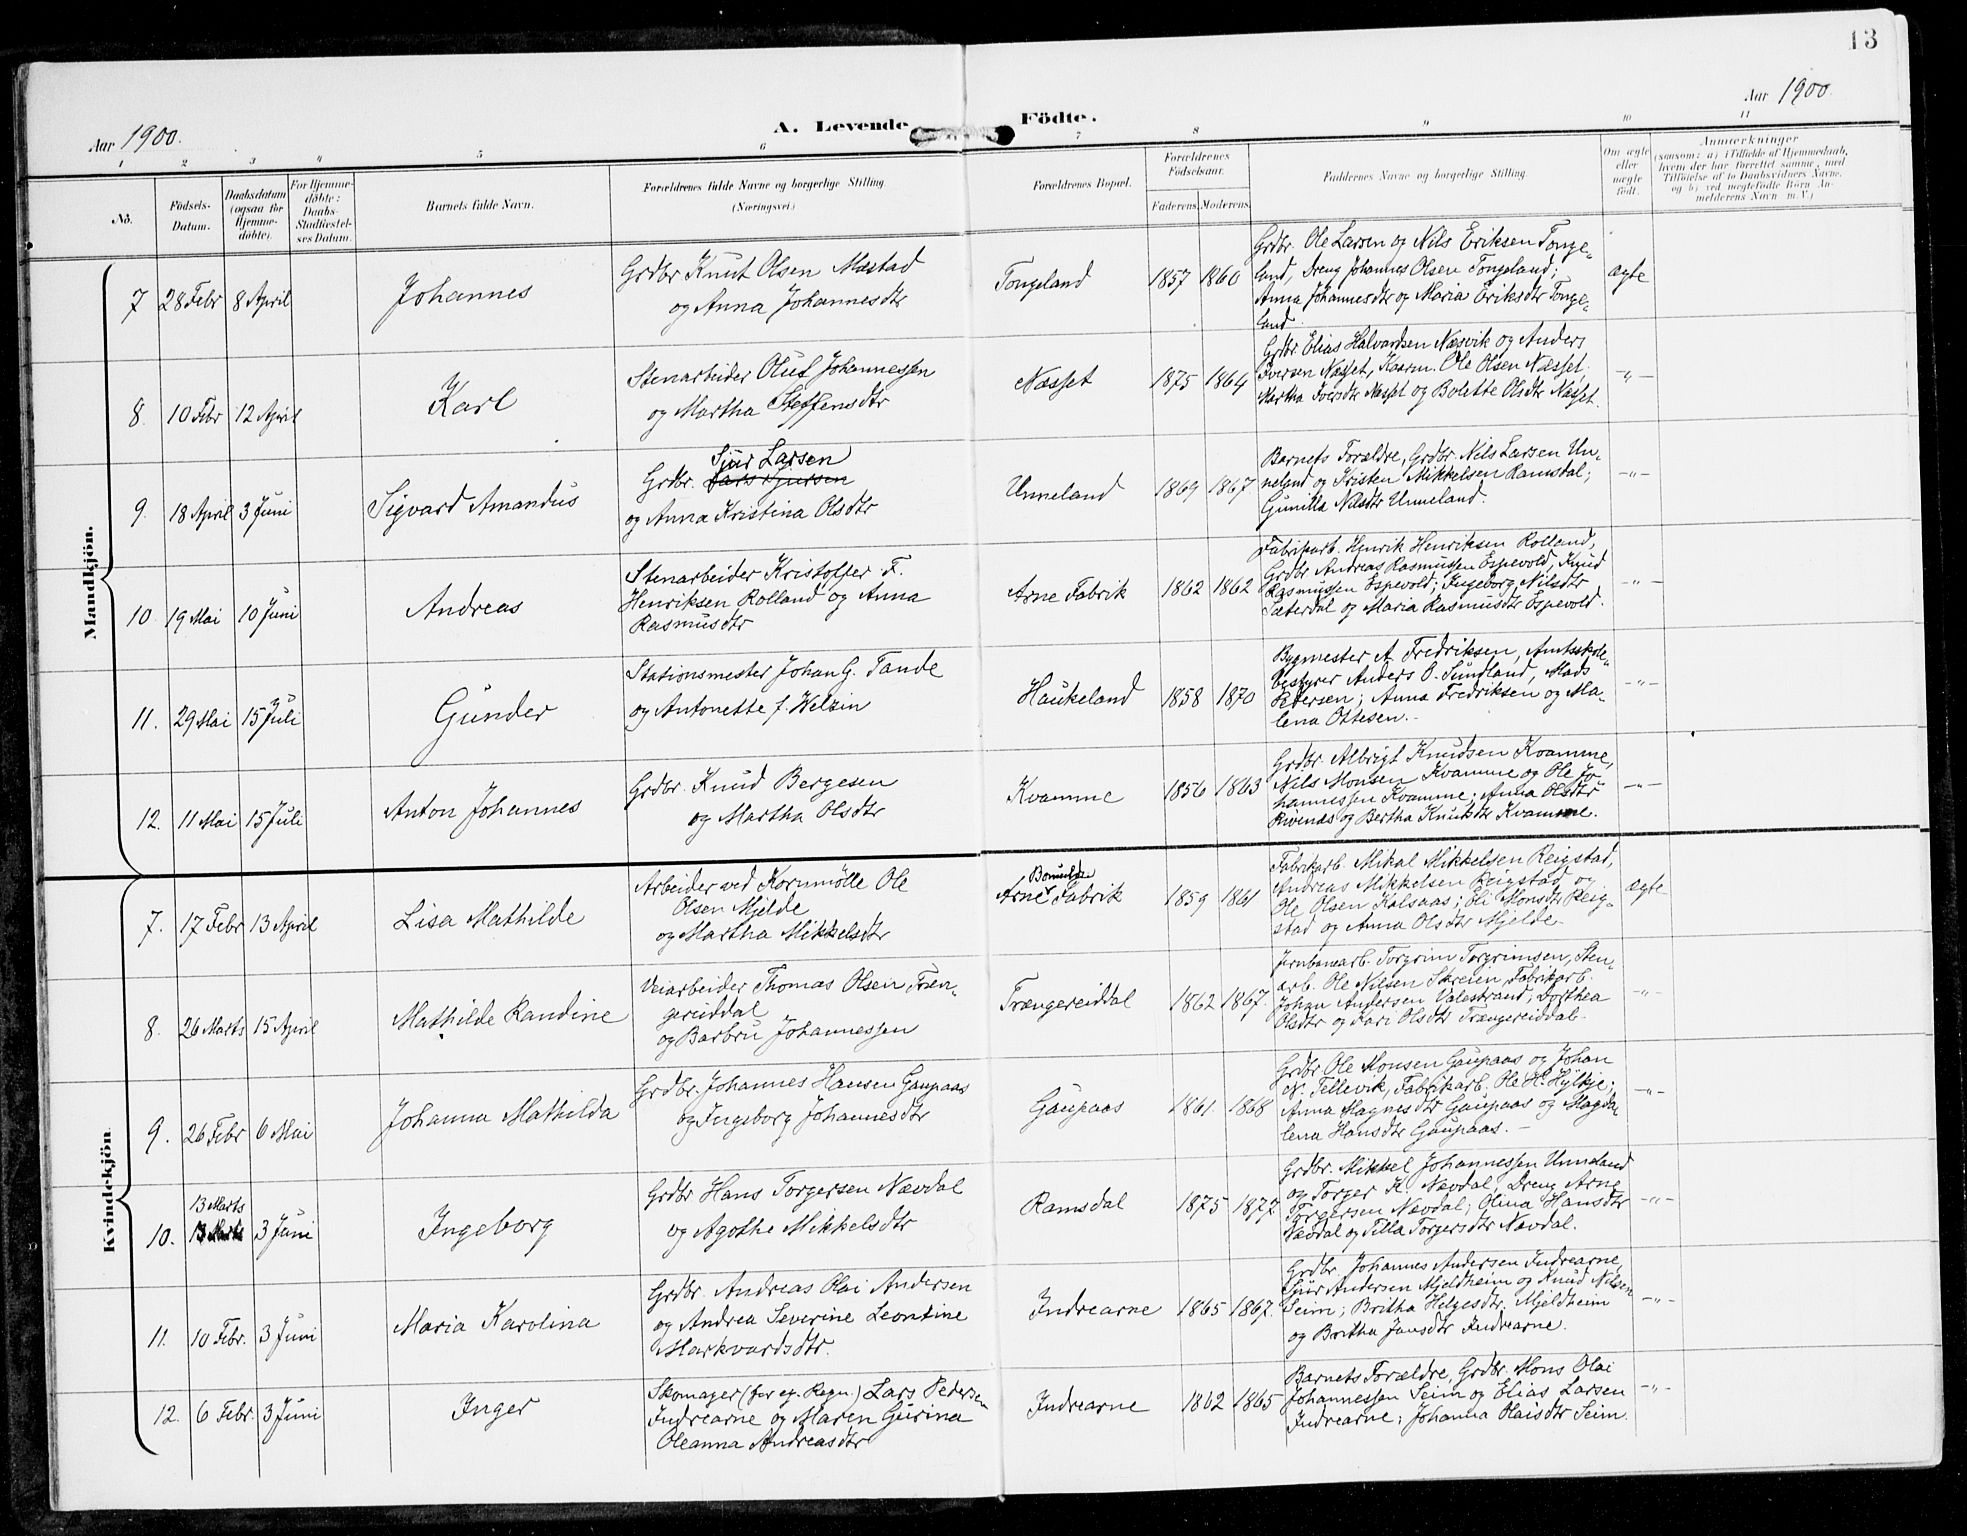 13
Aar 1900.
A. Levende Födte.
Aar 1900
1 2 3 4 5 6 7 8 9 10 11
No.
Födsels-Datum.
Daabsdatum (ogsaa for Hjemme-döbte).
For Hjemme-döbte: Daabs-Stadfæstel-ses Datum.
Barnets fulde Navn.
Forældrenes fulde Navne og borgerlige Stilling (Næringsvei.)
Forældrenes Bopæl.
Forældrenes Födselsaar.
Faderens. Moderens.
Faddernes Navne og borgerlige Stilling.
Om ægte eller uægte födt.
Anmærkninger
(saasom: a) i Tilfælde af Hjemmedaab,
hvem der har forrettet samme, med
Tilföielse af to Daabsvidners Navne,
og b) ved uægtefödte Börn An-
melderens Navn m. V.)
Mandkjön.
7 28 Febr 8 April Johannes
Grdbr Knut Olsen Mæstad
og Anna Johannesdtr
Tongeland 1857 1860
Grdbr. Ole Larsen og Nils Eriksen Tonge-
land, Dreng Johannes Olsen Tongeland;
Anna Johannesdtr og Maria Eriksdtr Tonge-
land.
ægte
8. 10 Febr 12 April Karl
Stenarbeider Oluf Johannessen
og Martha Steffensdtr
Næsset 1875 1864
Grdbr. Elias Halvardsen Næsvik og Anders
Iversen Næsset, Kaarm. Ole Olsen Næsset;
Martha Iversdtr Næsset og Bolette Olsdtr Næsset.
-"-
9. 18 April 3 Juni Sigvard Amandus
Sjur Larsen
Grdbr. Lars Sjursen
og Anna Kristina Olsdtr
Unneland 1869 1867
Barnets Forældre, Grdbr. Nils Larsen Un-
neland og Kristen Mikkelsen Ramsdal;
Gunilla Nilsdtr Unneland.
-"-
10. 19 Mai 10 Juni Andreas
Stenarbeider Kristoffer F.
Henriksen Rolland og Anna
Rasmusdtr
Arne Fabrik 1862 1862
Fabrikarb. Henrik Henriksen Rolland,
Grdbr Andreas Rasmussen Espevold, Knud
Rasmussen Espevold; Ingeborg Nilsdtr
Sæterdal og Maria Rasmusdtr Espevold.
-"-
11. 29 Mai 15 Juli Gunder
Stationsmester Johan G. Tande
og Antonette f. Welzin
Haukeland 1858 1870
Bygmester A. Fredriksen, Amtsskole-
bestyrer Anders O. Sundland, Mads
Petersen; Anna Fredriksen og Ma-
lena Ottesen.
-"-
12. 11 Mai 15 Juli Anton Johannes
Grdbr. Knud Bergesen
og Martha Olsdtr
Kvamme 1856 1863
Grdbr. Albrigt Knudsen Kvamme,
Nils Monsen Kvamme og Ole Jo-
hannessen Kvamme; Anna Olsdtr
Rivenæs og Bertha Knutsdtr Kvamme.
-"-
Kvindekjön.
7. 17 Febr 13 April Lisa Mathilde
Arbeider ved Kornmölle Ole
Olsen Mjelde
og Martha Mikkelsdtr
Arne Fabrik 1859 1861
Fabrikarb. Mikal Mikkelsen Reigstad,
Andreas Mikkelsen Reigstad og
Ole Olsen Kalsaas; Eli Monsdtr Reig-
stad og Anna Olsdtr Mjelde.
ægte
8. 26 Marts 15 April Mathilde Randine
Veiarbeider Thomas Olsen Træn-
gereiddal
og Barbru Johannessen
Trængereiddal 1862 1867.
Jernbanearb. Torgrim Torgrimsen, Sten-
arb. Ole Nilsen Skreien, Fabrikarb.
Johan Andersen Valestrand; Dorthea
Olsdtr og Kari Olsdtr Trængereiddal.
-"-
9. 26 Febr 6 Mai Johanna Mathilda
Grdbr. Johannes Hansen Gaupaas
og Ingeborg Johannesdtr
Gaupaas 1861. 1868
Grdbr Ole Monsen Gaupaas og Johan
N. Tellevik, Fabrikarb. Ole H. Hylkje;
Anna Magnesdtr Gaupaas og Magda-
lena Hansdtr Gaupaas.
-"-
13 Marts
10. 13 Marts 3 Juni Ingeborg
Grdbr Hans Torgersen Nævdal
og Agothe Mikkelsdtr
Ramsdal 1875 1877.
Grdbr. Mikkel Johannessen Unneland
og Torger K. Nævdal, Dreng Arne
Torgersen Nævdal; Olina Hansdtr
Nævdal og Tilla Torgersdtr Nævdal.
-"-
11. 10 Febr. 3 Juni Maria Karolina
Grdbr. Andreas Olai Andersen
og Andrea Severine Leontine
Markvardsdtr.
Indrearne 1865 1867.
Grdbr. Johannes Andersen Indrearne,
Sjur Andersen Mjeldheim og Knud Nilsen
Seim; Britha Helgesdtr. Mjeldheim
og Britha Jansdtr Indrearne.
-"-
12. 6 Febr. 3 Juni Inger
Skomager (for eg. Regn.) Lars Pedersen
Indrearne og Maren Gurina
Oleanna Andreasdtr
Indrearne 1862 1865
Barnets Forældre, Grdbr. Mons Olai
Johannessen Seim og Elias Larsen
Indrearne; Johanna Olaisdtr Seim.
-"-